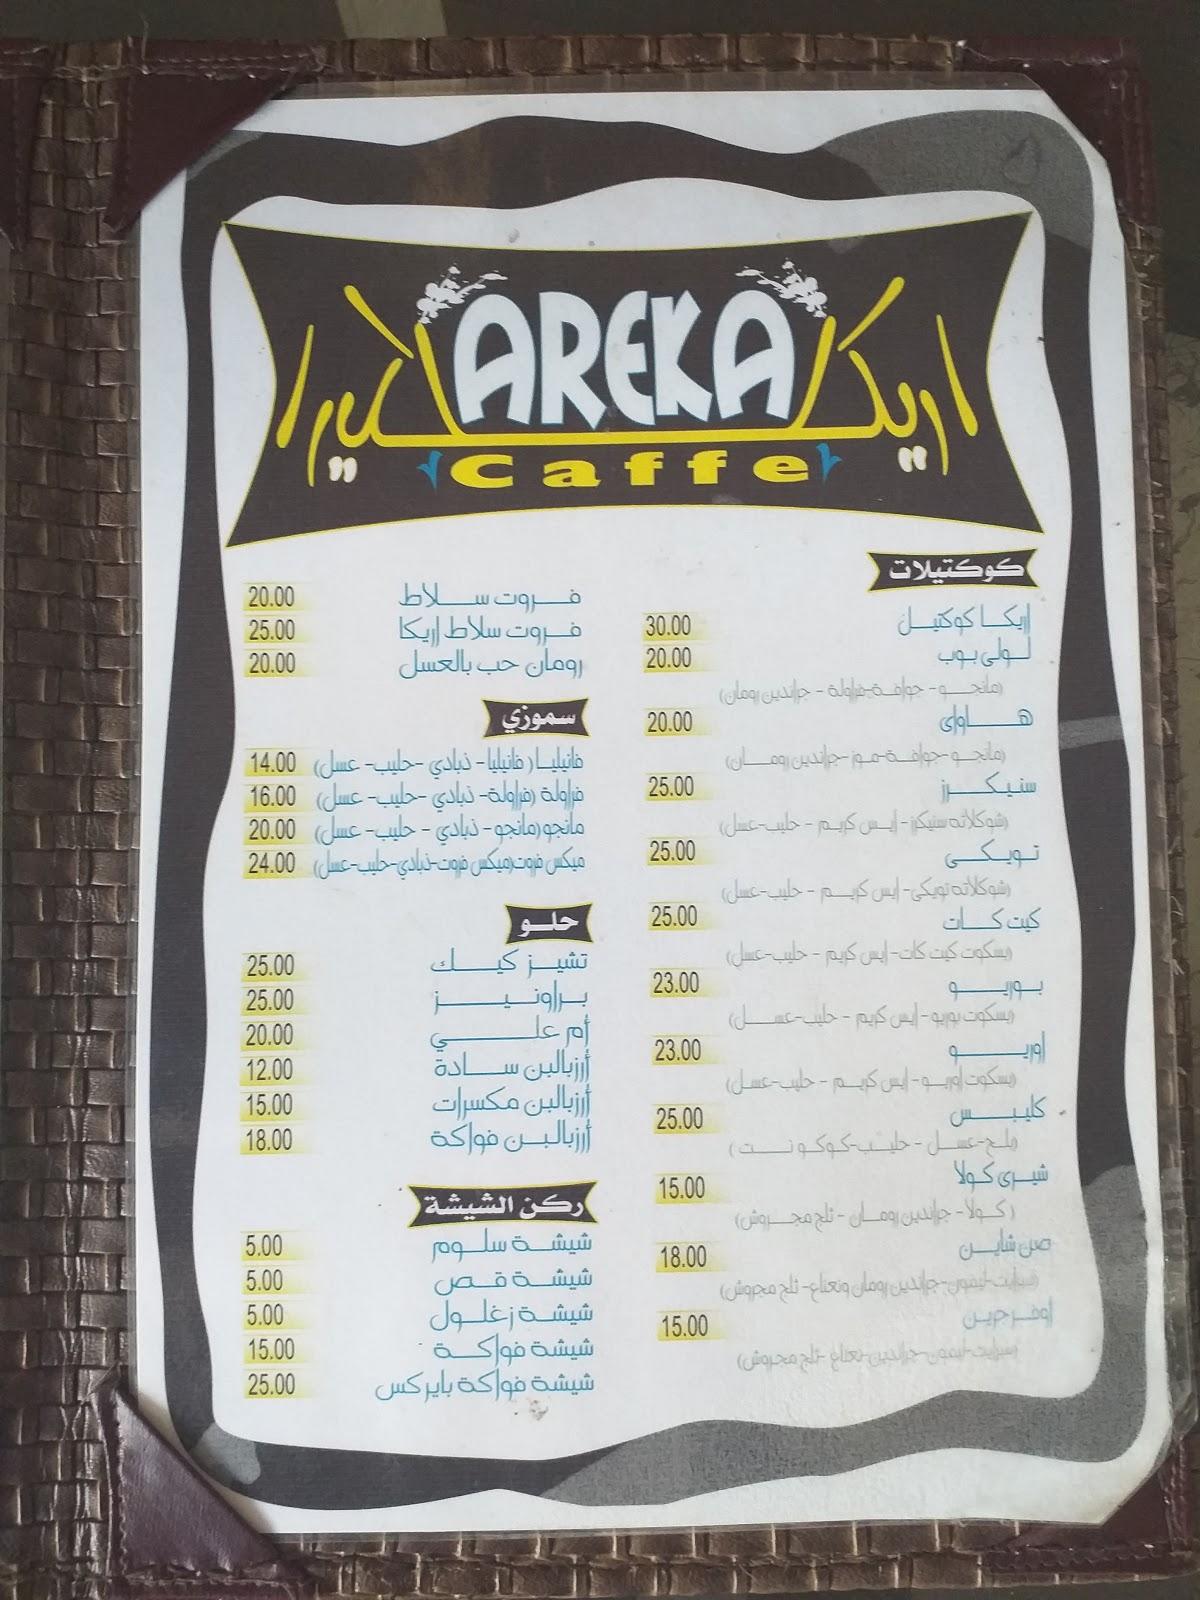 AREKA
Caffe
كوكتيلات
اريكا كوكتيل 30.00
لولى بوب 20.00
(مانجو - جوافة-فراولة - جراندين رومان)
هاواى 20.00
(مانجو -جوافة-موز -جراندين رومان)
سنيكرز 25.00
(شوكلاته سنيكرز- إيس كريم - حليب-عسل)
تويكى 25.00
(شوكلاته تويكى- إيس كريم - حليب-عسل)
كيت كات 25.00
(بسكوت كيت كات- إيس كريم - حليب-عسل)
بوريو 23.00
(بسكوت بوريو- إيس كريم - حليب-عسل)
اوريو 23.00
(بسكوت اوريو- إيس كريم - حليب-عسل)
كليبس 25.00
(بلح-عسل - حليب-كوكو نت)
شيرى كولا 15.00
(كولا- جراندين رومان - ثلج مجروش)
صن شاين 18.00
(سبرايت-ليمون-جراندين رومان ونعناع- ثلج مجروش)
اوفر جرين 15.00
(سبرايت-ليمون-جراندين-نعناع -ثلج مجروش)
فروت سلاط 20.00
فروت سلاط اريكا 25.00
رومان حب بالعسل 20.00
سموزي
فانيليا (فانيليا- ذبادي -حليب- عسل) 14.00
فراولة (فراولة- ذبادي -حليب- عسل) 16.00
مانجو (مانجو- ذبادي - حليب- عسل) 20.00
ميكس فروت (ميكس فروت-ذبادي-حليب-عسل) 24.00
حلو
تشيز كيك 25.00
براونيز 25.00
أم علي 20.00
أرزبالبن سادة 12.00
أرزبالبن مكسرات 15.00
أرزبالبن فواكة 18.00
ركن الشيشة
شيشة سلوم 5.00
شيشة قص 5.00
شيشة زغلول 5.00
شيشة فواكة 15.00
شيشة فواكة بايركس 25.00